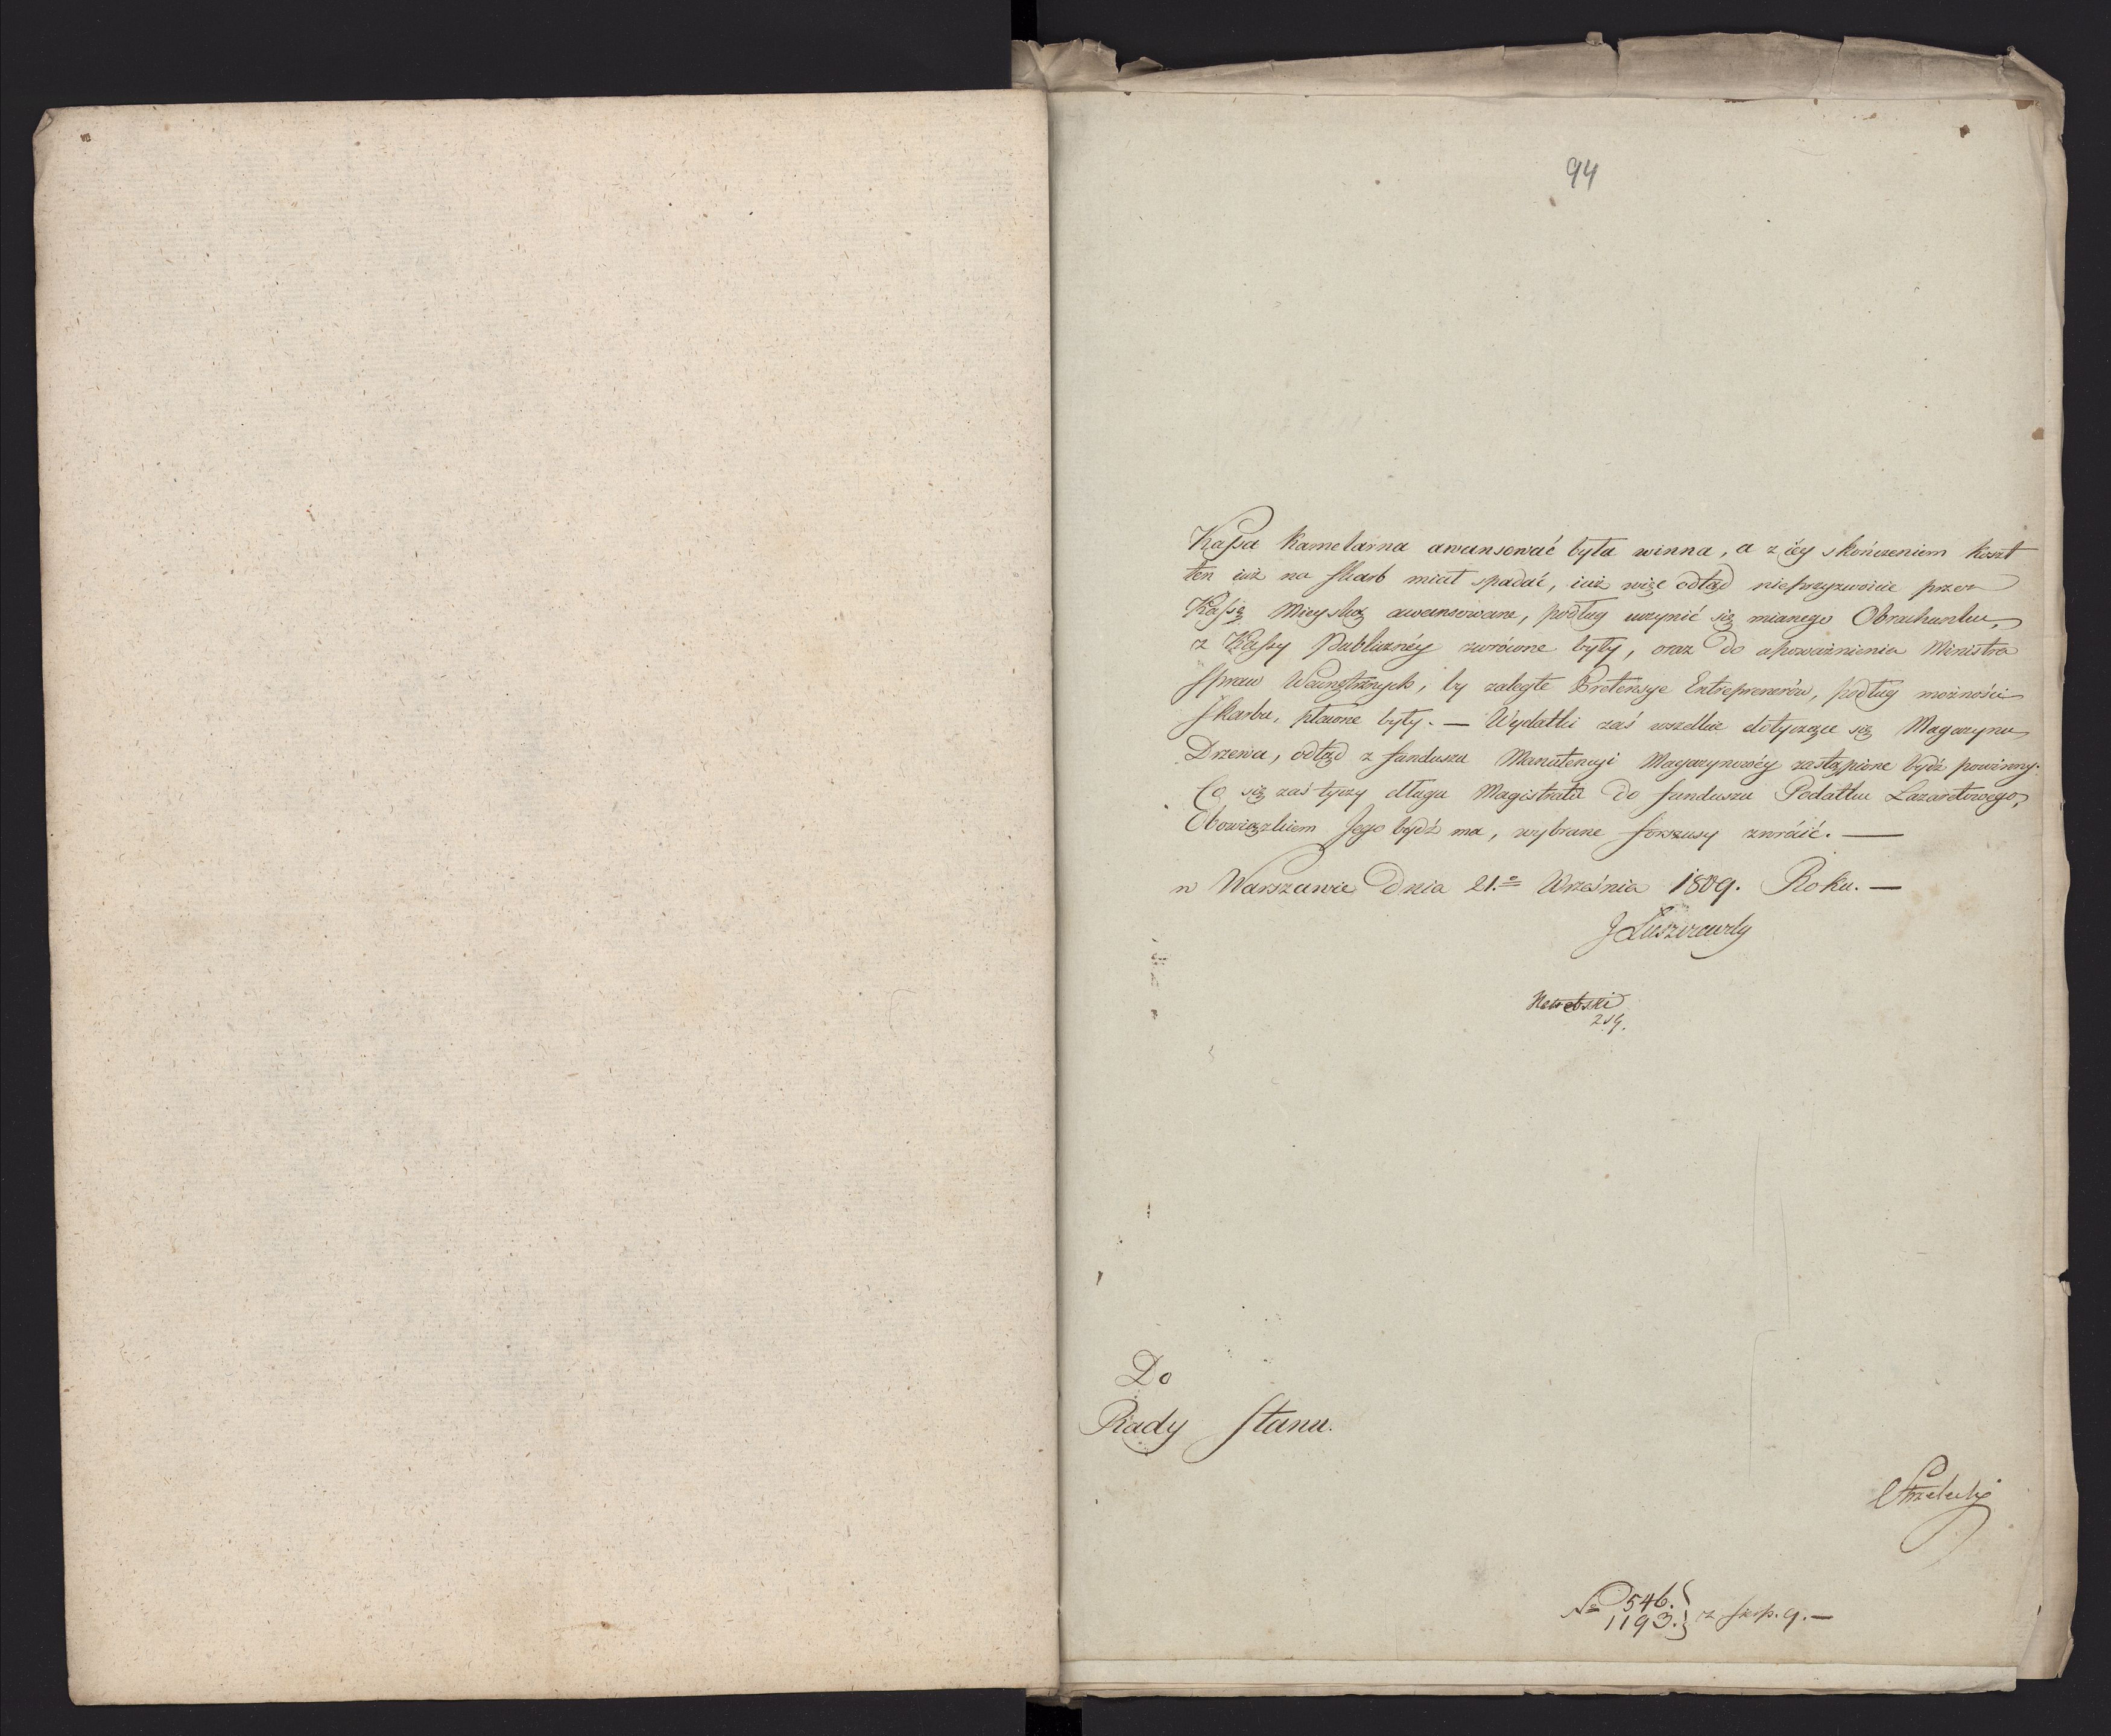 94
Kaſsa Kamelarna awansować była winna, a z iey skończeniem koszt
ten iuż na Skarb miał spadać, iuż więc odtąd nieprzyzwoicie przez
Kaſsę Mieyską awansowane, podług uczynić się mianego Obrachunku,
z Kaſsy Publiczney zwrócone były, oraz do upoważnienia Ministra
Spraw Wewnętrznych, by zaległe Pretensye Entreprenerów, podług możności
Skarbu, płacone były. — Wydatki zaś wszelkie dotyczące się Magazynu
Drzewa, odtąd z funduszu Manutencyi Magazynowéy zastąpione bydź powinny.
Co się zaś tyczy długu Magistratu do funduszu Podatku Lazaretowego,
Obowiązkiem Jego bydź ma, wybrane forszusy zwrócić. —
w Warszawie Dnia 21.º Września 1809. Roku. —
J Łuszczewsky
Do
Rady Stanu.
Nº 546.
1193. } z Sept. 9. —